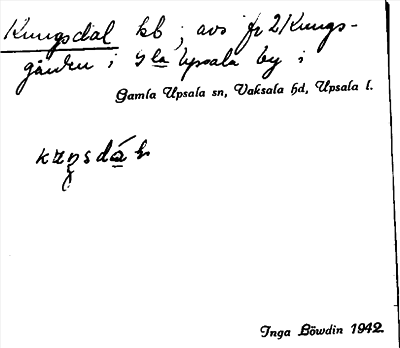 Kungsdal kb ; avs fr 2/Kungs-
gården i Gla Upsala by i
Gamla Upsala sn, Vaksala hd, Upsala l.
Inga Löwdin 1942.